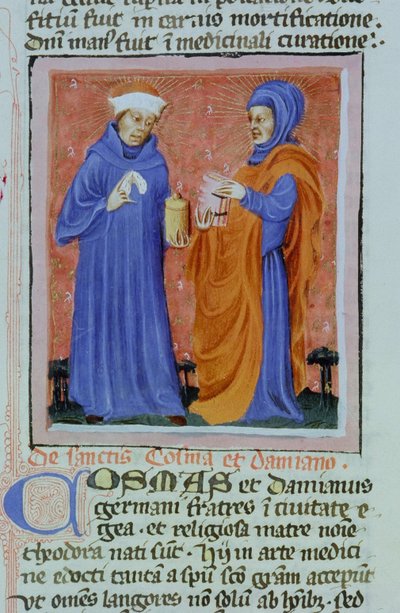 fitium fuit in carnis mortificatione.
Dm̄ man⁹ fuit ī medicinali curatione:·
De sanctis Cosma et damiano.
COSMAS et Damianus
germani fratres ī ciuitate e
gea. et religiosa matre noīe
theodora nati sūt. Hij in arte medici
ne edocti tantā a spū scō gr̄am acceperūt
vt omēs langores nō solū ab hoībꝫ, sed